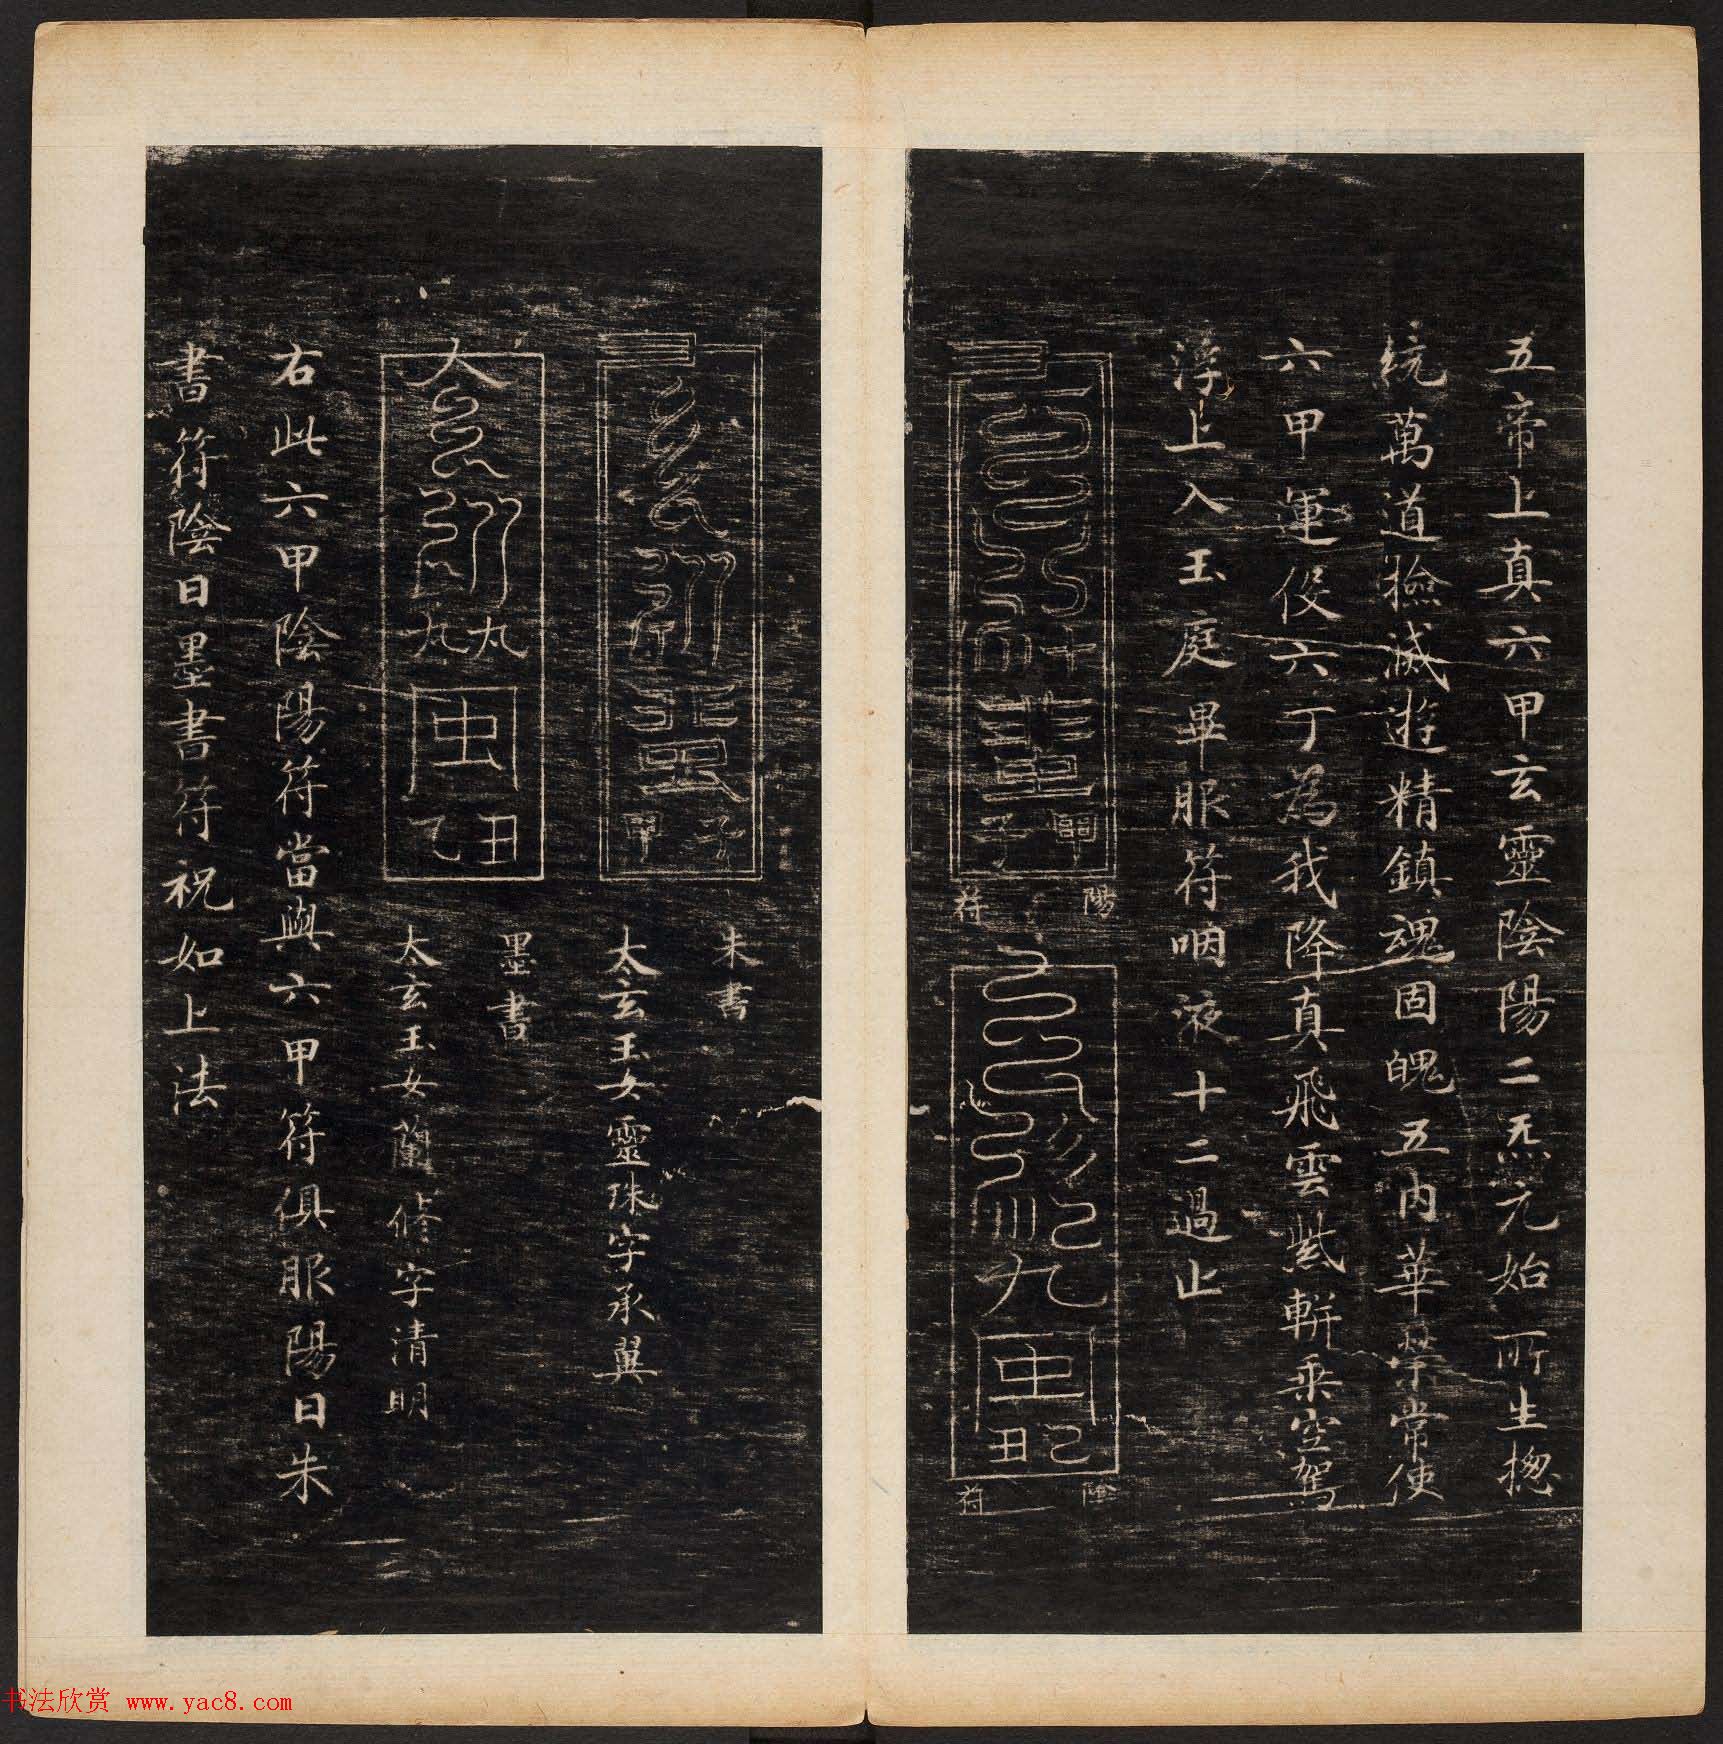 五帝上真六甲玄靈陰陽二炁元始所生揔
統萬道撿滅遊精鎮魂固魄五內華榮常使
六甲運役六丁為我降真飛雲紫軿乘空駕
浮上入玉庭畢服符咽液十二過止
陽符
陰符
朱書
太玄玉女靈珠字承翼
墨書
太玄玉女蘭脩字清明
右此六甲陰陽符當與六甲符俱服陽日朱
書符陰日墨書符祝如上法
书法欣赏 www.yac8.com